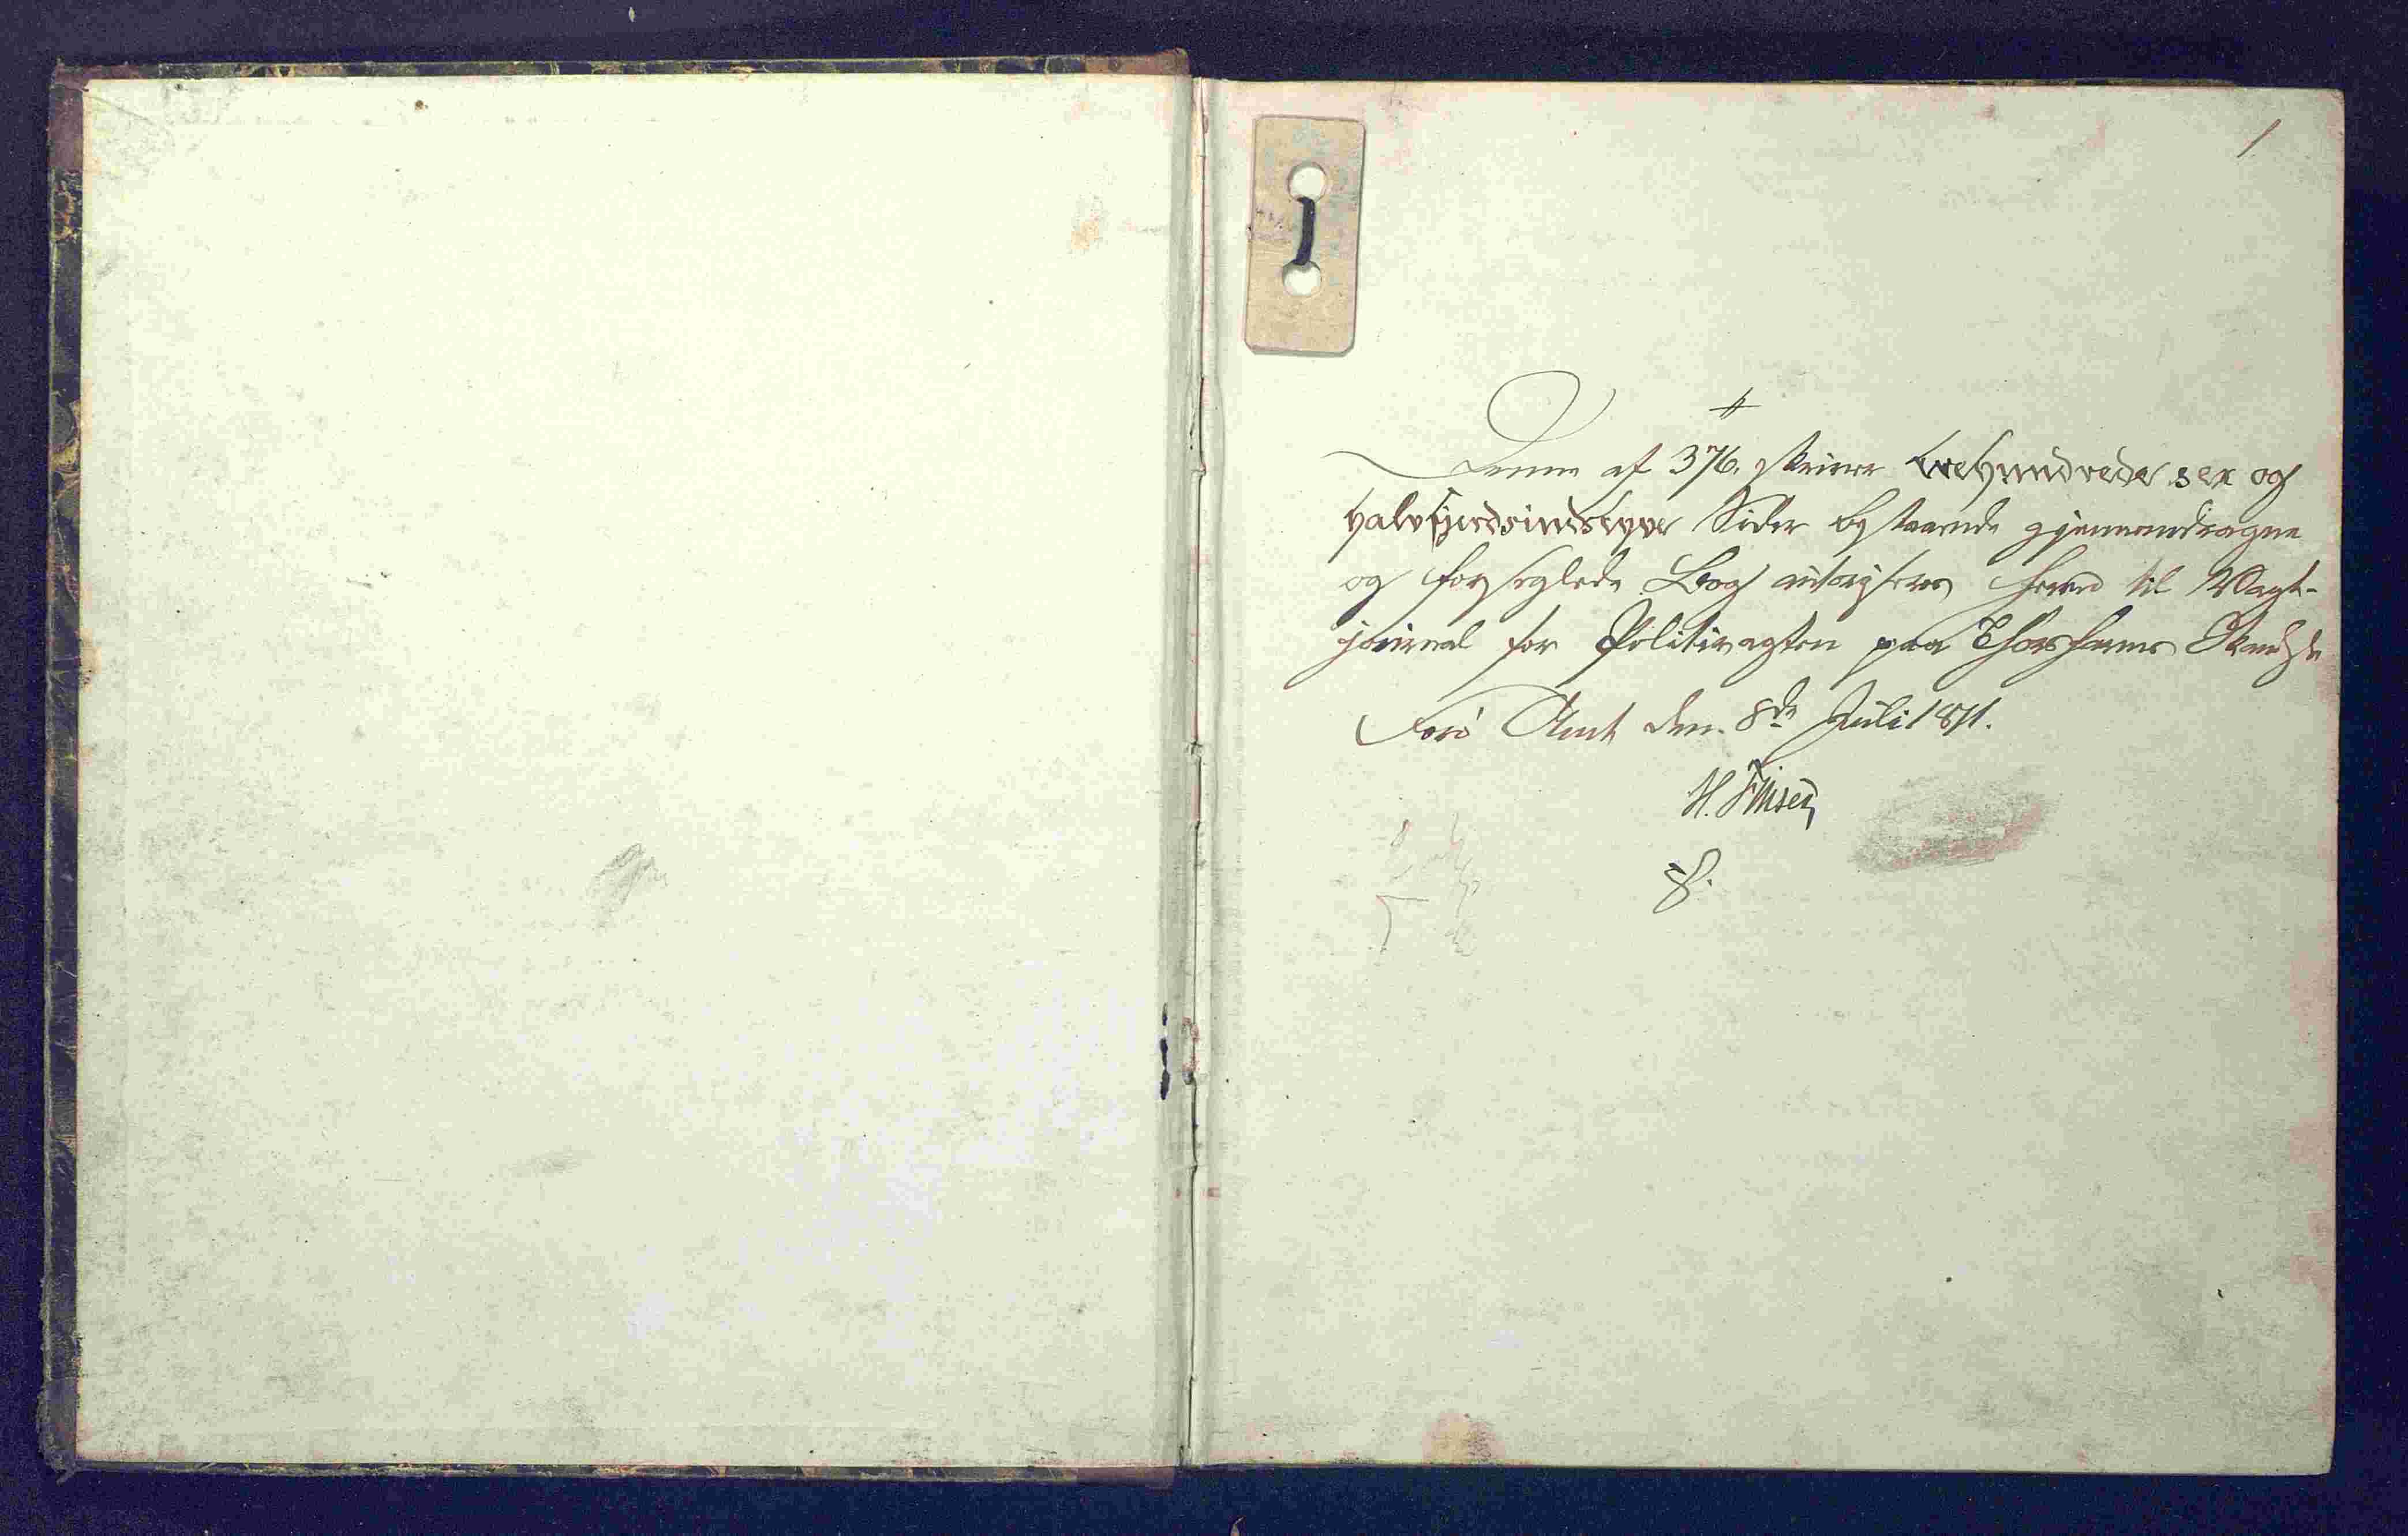 1
Denne af 376, skriver trehundrede sex og
halvfjerdsindstyve Sider bestaaende gjennemdragne
og forseglede Bog autoriseres herved til Vagt-
journal for Politivagten paa Thorshavns Skandse
Færø Amt den 8de Juli 1871.
H. Finsen